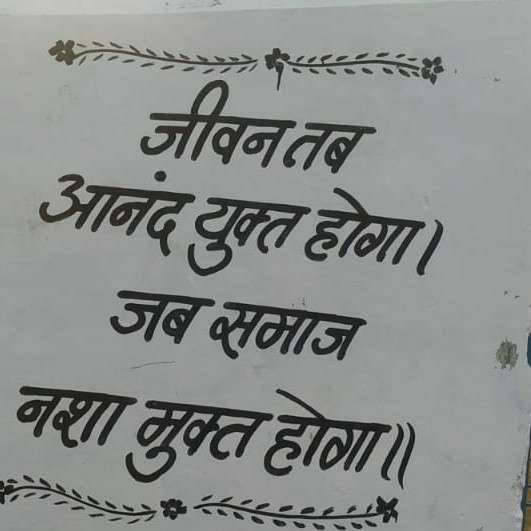 जीवन तब
आनंद युक्त होगा।
जब समाज
नशा मुक्त होगा॥